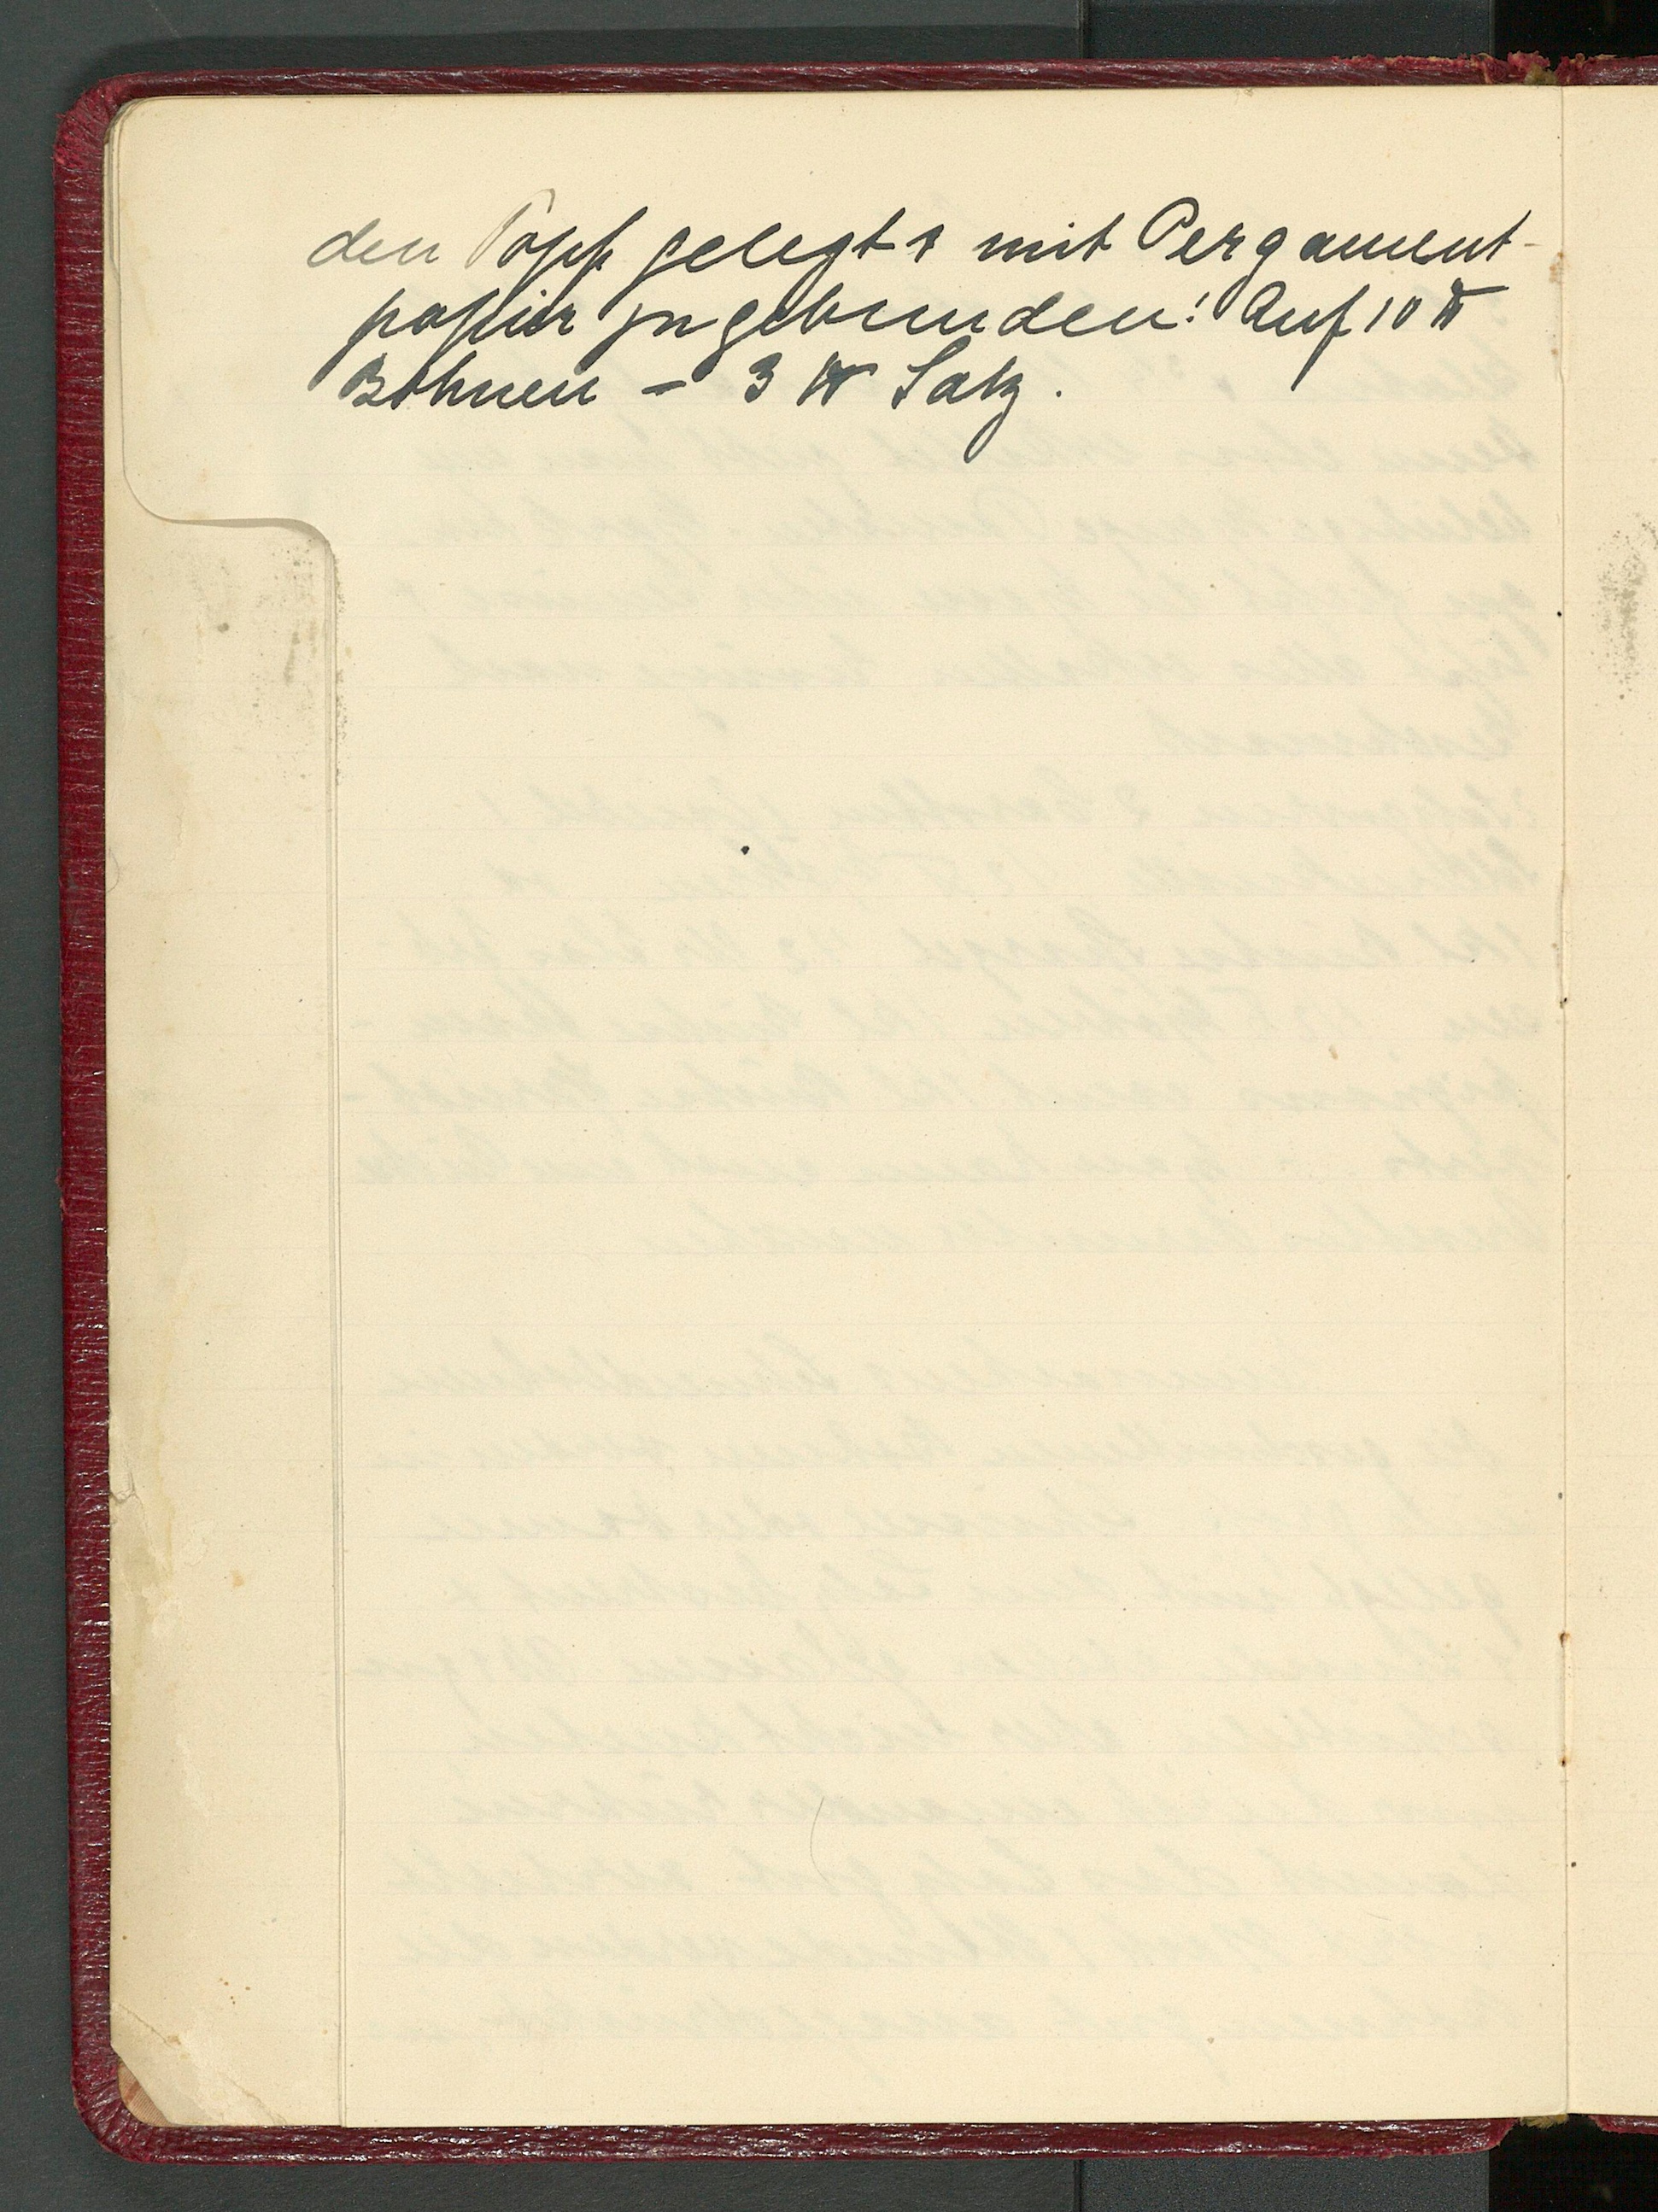 den Topf gelegt & mit Pergament-
papier zugebunden! Auf 10 ℔
Bohnen - 3 ℔ Salz.